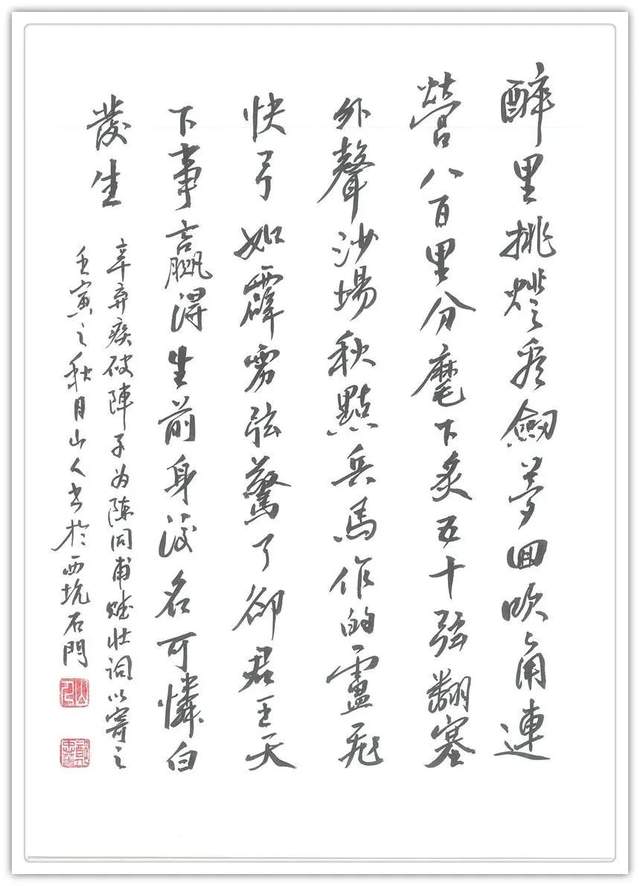 醉里挑燈看劍夢回吹角連
營八百里分麾下炙五十弦翻塞
外聲沙場秋點兵馬作的盧飛
快弓如霹靂弦驚了卻君王天
下事贏得生前身後名可憐白
發生
辛弃疾破陣子为陳同甫赋壯詞以寄之
壬寅之秋月山人书於西坑石門